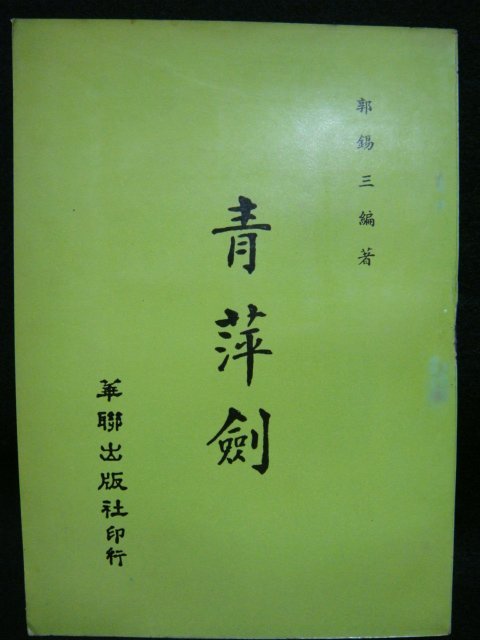 郭錫三編著
青萍劍
華聯出版社印行